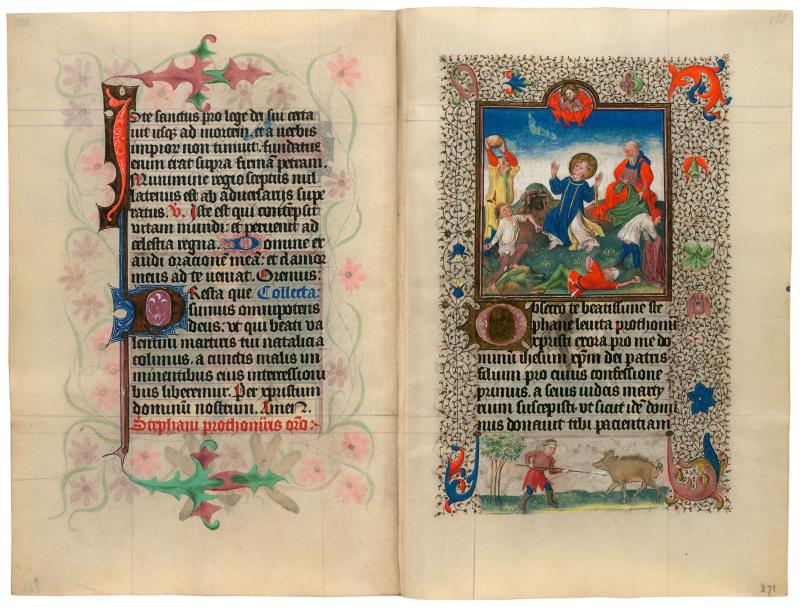 Iste sanctus pro lege dei sui certa
uit usq; ad mortem, et a uerbis
impior non timuit, fundatus
enim erat supra firmam petram.
Munimine regio sceptus mil
latenus est ab aduersarijs supe
ratus. V. Iste est qui contempsit
vitam mundi: et peruenit ad
celestia regna. Domine ex
audi orationem meam: et clamor
meus ad te ueniat. Oremus:
Presta que Collecta:
sumus omnipotens
deus: vt qui beati va
lentini martiris tui natalicia
colimus, a cunctis malis im
minentibus eius intercessioni
bus liberemur. Per xpristum
dominū nostrum. Amen.
Stephani prothomr̄is orō:
Obsecro te beatissime ste
phane leuita prothom̄r
xpristi exora pro me do
minū ihesum xp̄m dei patris
filium pro cuius confessione
primus, a seuis iudeis marty
rium suscepisti, vt sicut idē domi
nus donauit tibi pacientiam
271